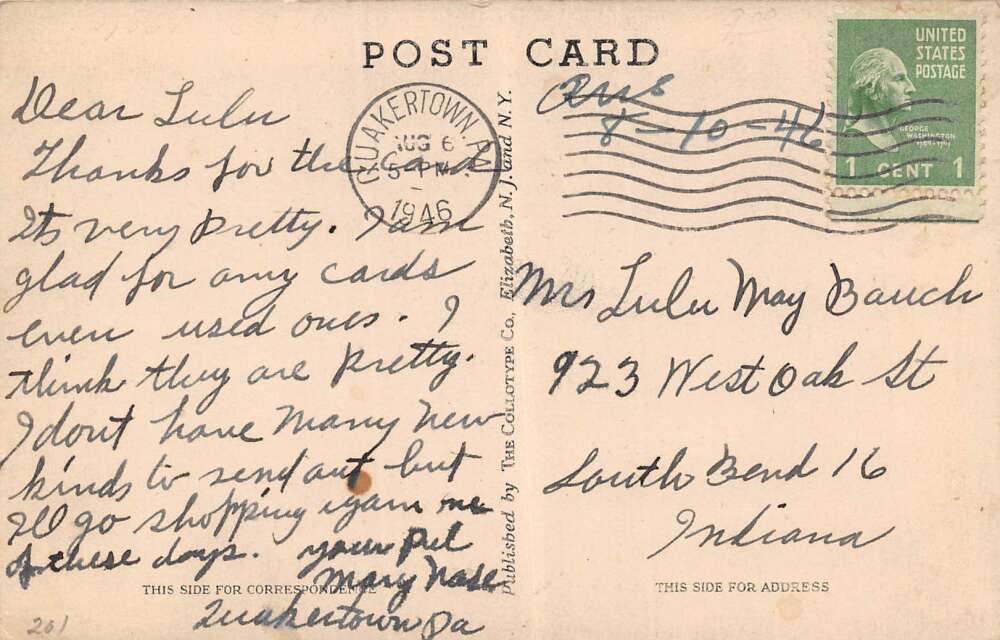 POST CARD
Dear Lulu
Thanks for the Card
Its very pretty. I am
glad for any cards
even used ones. I
think they are pretty.
I dont have many new
kinds to send out but
I'll go shopping again one
of these days. your Pal
Mary Nase
Quakertown Pa
THIS SIDE FOR CORRESPONDENCE
201
QUAKERTOWN, PA.
AUG 6
5-PM
1946
Published by THE COLLOTYPE CO., Elizabeth, N. J. and N. Y.
Ans
8-10-46
UNITED
STATES
POSTAGE
GEORGE
WASHINGTON
1 CENT 1
Mrs Lulu May Bauch
923 West Oak St
South Bend 16
Indiana
THIS SIDE FOR ADDRESS